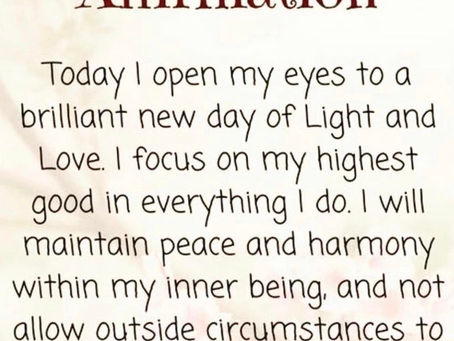 Affirmation
Today I open my eyes to a
brilliant new day of Light and
Love. I focus on my highest
good in everything I do. I will
maintain peace and harmony
within my inner being, and not
allow outside circumstances to